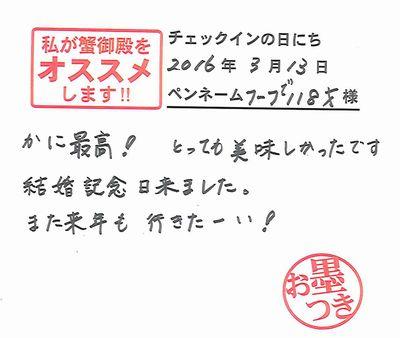 私が蟹御殿を
オススメ
します!!
チェックインの日にち
2016年 3月13日
ペンネーム フープで118才 様
かに最高! とっても美味しかったです
結婚記念日来ました。
また来年も 行きたーい!
お墨つき